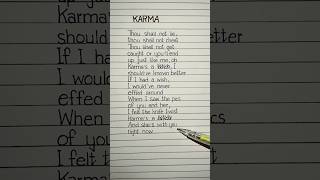 KARMA
Thou shall not lie,
thou shall not cheat
Thou shall not get
caught or you'll end
up just like me, oh
Karma's a bitch, I
should've known better
If I had a wish,
I would've never
effed around
When I saw the pics
of you and her,
I felt the knife twist
Karma's a bitch
And she's with you
right now
If I
I would
effed
When
of you
I felt t